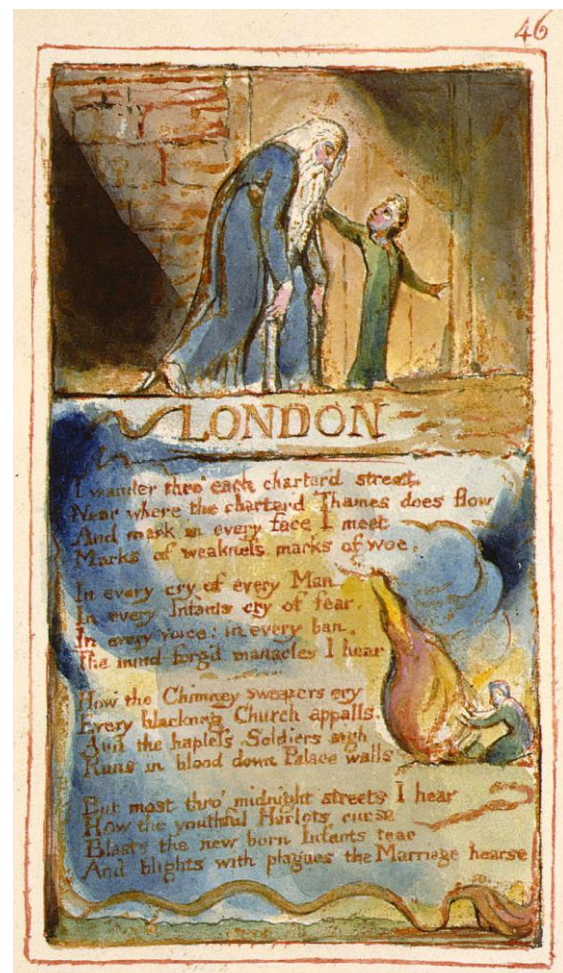 46
LONDON
I wander thro' each charter'd street,
Near where the charter'd Thames does flow
And mark in every face I meet
Marks of weakness, marks of woe.
In every cry of every Man,
In every Infants cry of fear,
In every voice; in every ban,
The mind-forg'd manacles I hear
How the Chimney-sweepers cry
Every blackning Church appalls,
And the hapless Soldiers sigh
Runs in blood down Palace walls
But most thro' midnight streets I hear
How the youthful Harlots curse
Blasts the new born Infants tear
And blights with plagues the Marriage hearse